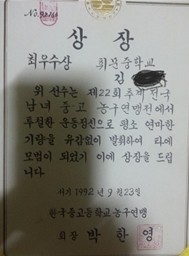 상장
최우수상
김
위 선수는 제22회 추계 전국
남녀 중·고 농구연맹전에서
투철한 운동정신으로 평소 연마한
기량을 유감없이 발휘하여 타에
모범이 되었기 이에 상장을 드립
니다
서기 1992년 9월 23일
한국중고등학교 농구연맹
회장 박한영